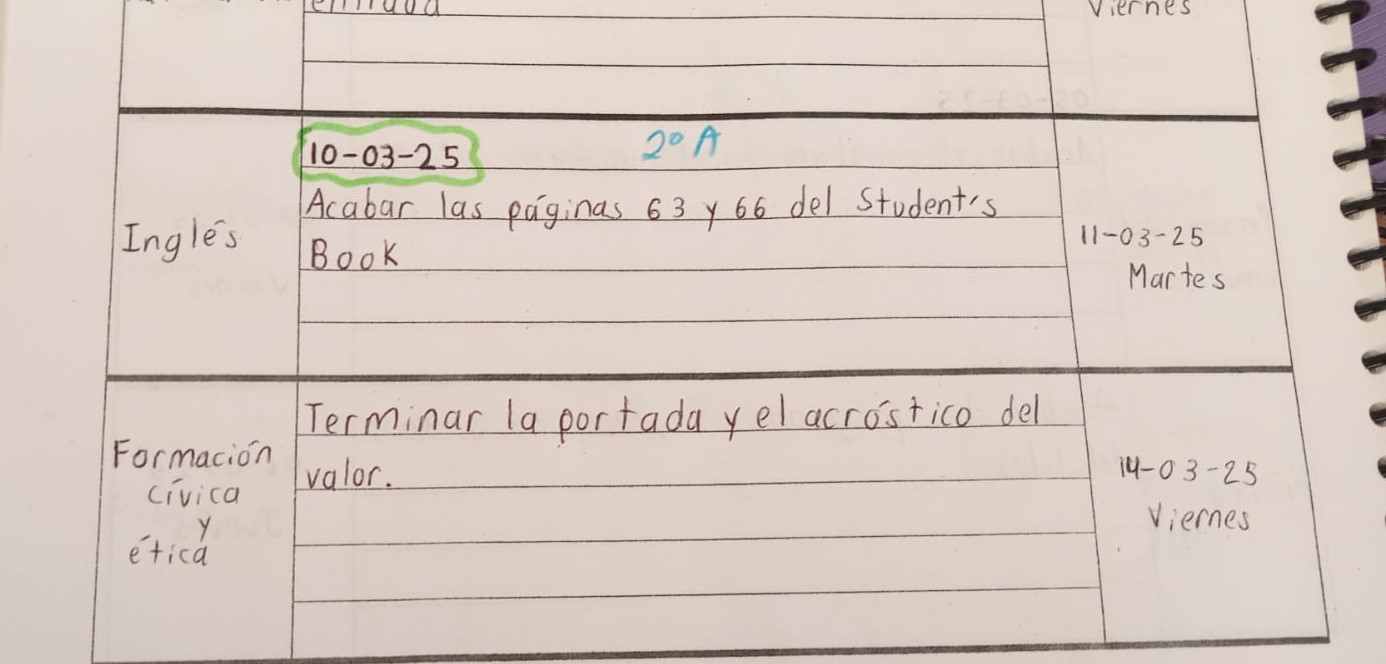 Viernes
10-03-25 2º A
Inglés
Acabar las páginas 63 y 66 del Student's
Book
11-03-25
Martes
Formación
cívica
y
ética
Terminar la portada y el acróstico del
valor.
14-03-25
Viernes